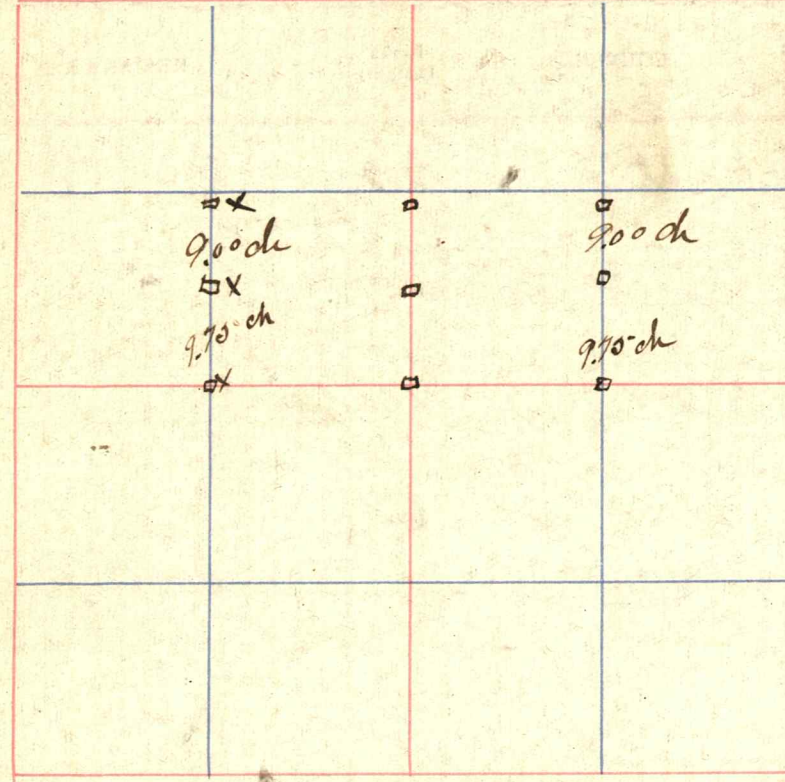 x
9.00 ch
9.00 ch
x
9.75 ch
9.75 ch
x